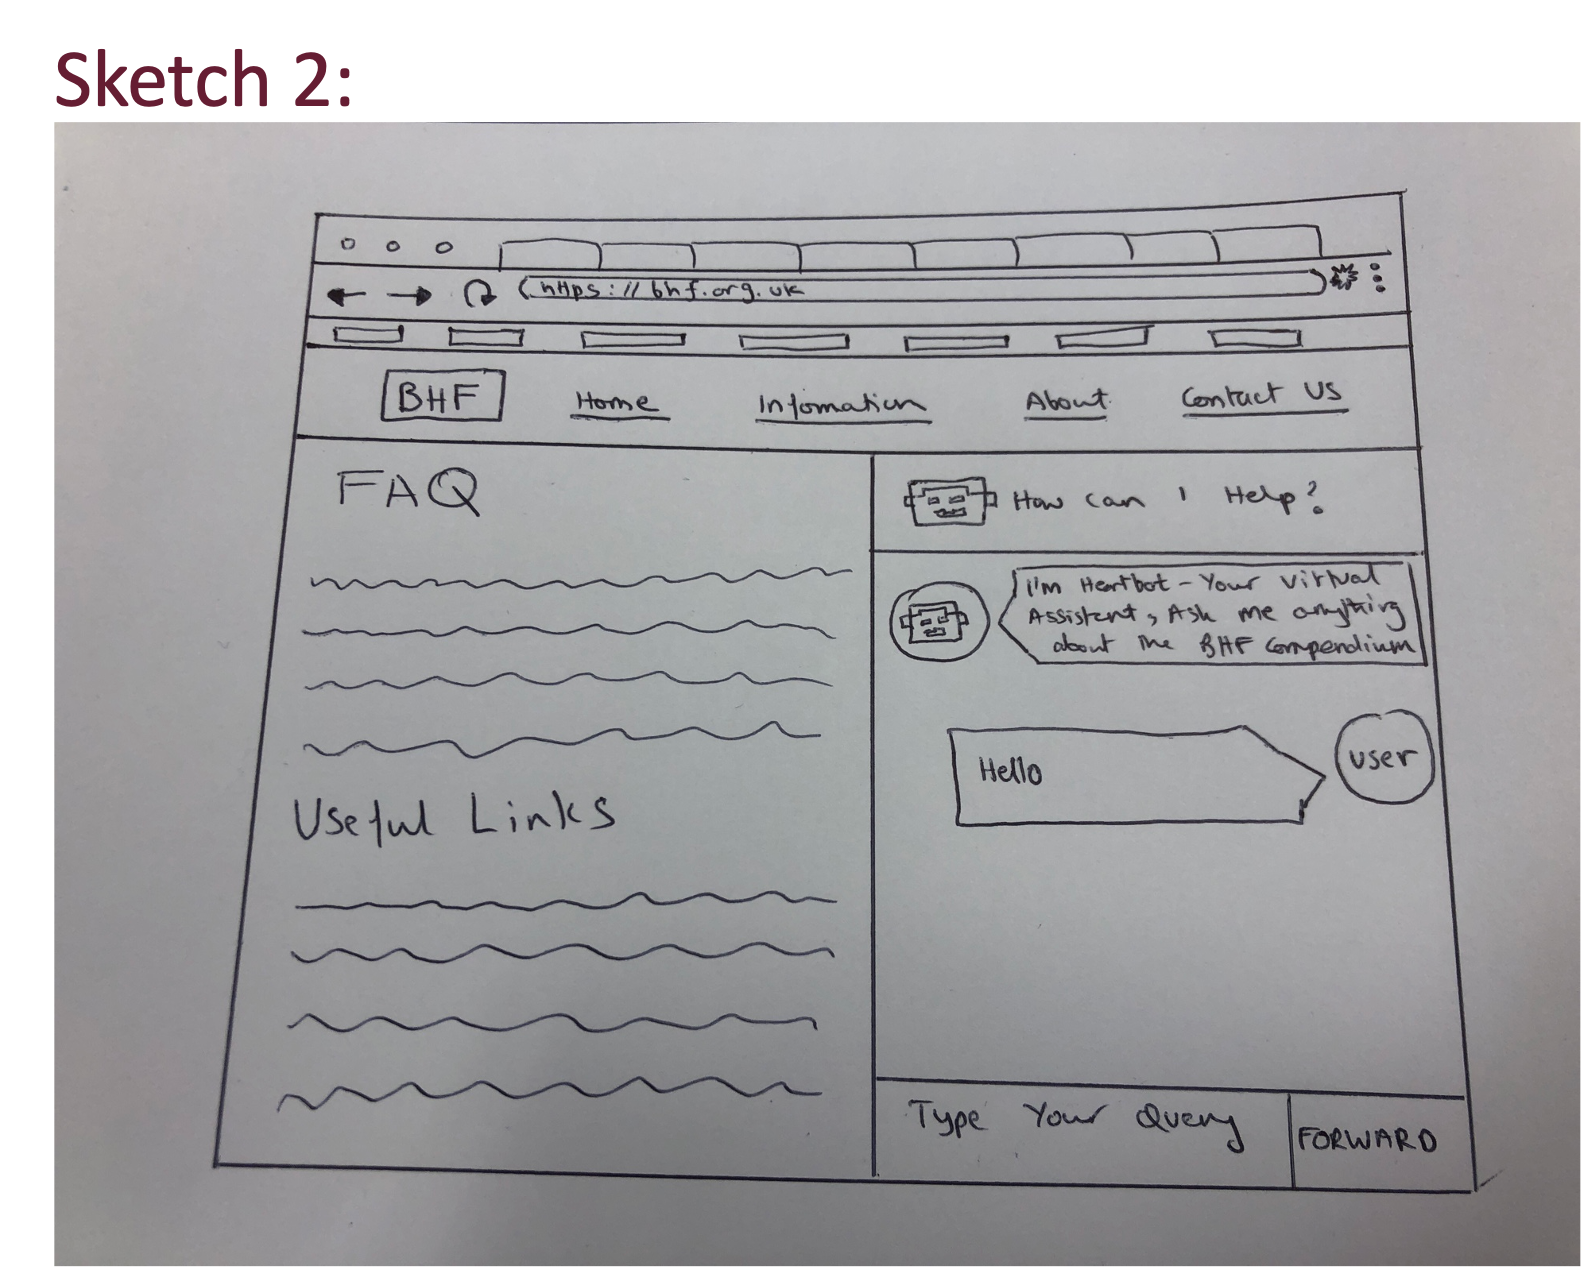 Sketch 2:
https://bhf.org.uk
BHF Home Infomation About Contact US
FAQ
Useful Links
How can I Help?
I'm Heartbot - Your Virtual
Assistant, Ask me anything
about the BHF Compendium
Hello
user
Type Your Query
FORWARD